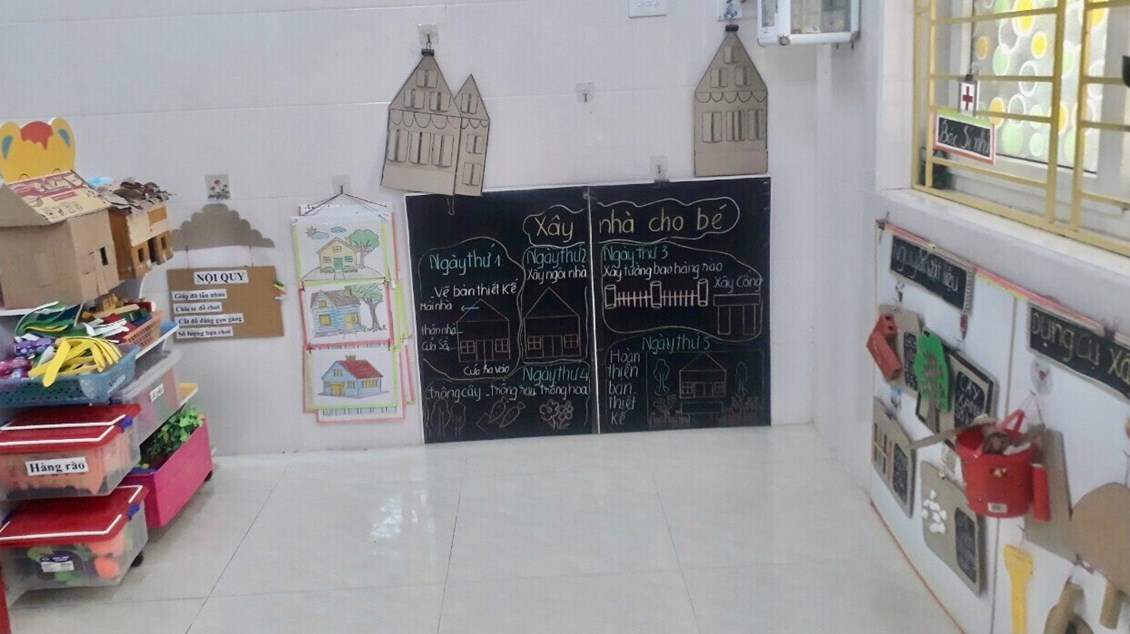 Xây nhà cho bé
Ngày thứ 1
Vẽ bản thiết kế
Mái nhà
thân nhà
Cửa sổ
Cửa ra vào
Ngày thứ 2
Xây ngôi nhà
Ngày thứ 3
Xây tường bao hàng rào
Xây Cổng
Ngày thứ 4
trồng cây - trồng rau, trồng hoa
Ngày thứ 5
Hoàn
thiện
bản
thiết
kế
NỘI QUY
Giúp đỡ lẫn nhau
Chia sẻ đồ chơi
Cất đồ dùng gọn gàng
Số lượng bạn chơi
Hàng rào
Bác sĩ nhí
nguyên vật liệu
Dụng cụ xâ